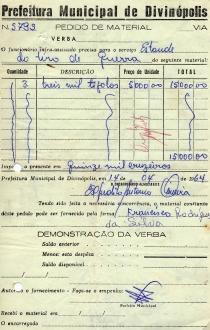 Prefeitura Municipal de Divinópolis
N. 3793 PEDIDO DE MATERIAL VIA
VERBA
O funcionário infra-assinado precisa para o serviço Estande
do tiro de guerra do seguinte material:
Quantidade DESCRIÇÃO Preço da Unidade TOTAL
3 três mil tijolos 5000.00 15000.00
15000.00
Importa o presente em quinze mil cruzeiros
Prefeitura Municipal de Divinópolis, em 14 de 04 de 1964
O ENCARREGADO
Tendo sido feita a necessária concorrência, o material constante
deste pedido pode ser fornecido pela firma Francisco Rodrigues
da Silva
DEMONSTRAÇÃO DA VERBA
Saldo anterior
Menos: esta despêsa
Saldo disponível
Autorizo o fornecimento - Faça-se o empenho:
Prefeito Municipal
Recebi os materiais
O encarregado